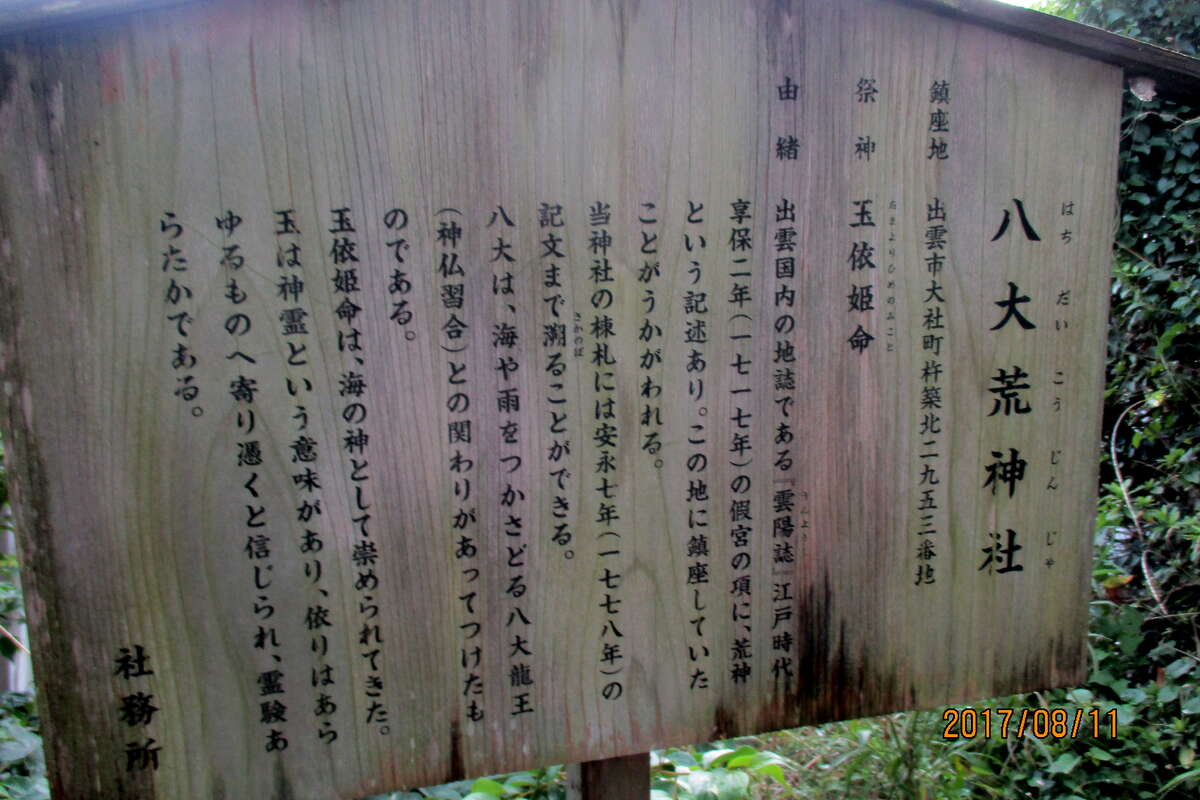 はちだいこうじんじゃ
八大荒神社
鎮座地 出雲市大社町杵築北二九五三番地
たまよりひめのみこと
祭神 玉依姫命
うんよう
由緒 出雲国内の地誌である『雲陽誌』江戸時代
享保二年(一七一七年)の假宮の項に、荒神
という記述あり。この地に鎮座していた
ことがうかがわれる。
当神社の棟札には安永七年(一七七八年)の
さかのぼ
記文まで溯ることができる。
八大は、海や雨をつかさどる八大龍王
(神仏習合)との関わりがあってつけたも
のである。
玉依姫命は、海の神として崇められてきた。
玉は神霊という意味があり、依りはあら
ゆるものへ寄り憑くと信じられ、霊験あ
らたかである。
社務所
2017/08/11